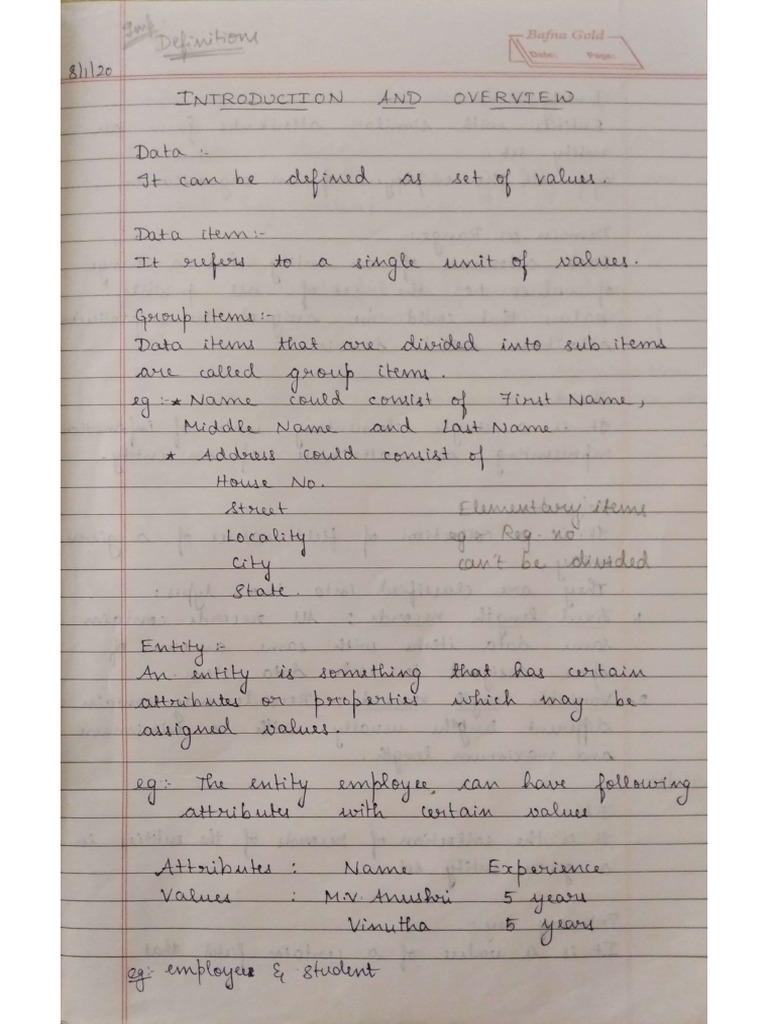 Imp.
Definitions
Bafna Gold
Date: Page:
8/1/20
INTRODUCTION AND OVERVIEW
Data :-
It can be defined as set of values.
Data item:-
It refers to a single unit of values.
Group items:-
Data items that are divided into sub items
are called group items.
eg:- * Name could consist of First Name,
Middle Name and Last Name
* Address could consist of
House No.
Street Elementary items
Locality eg: Reg. no
City can't be divided
State.
Entity :-
An entity is something that has certain
attributes or properties which may be
assigned values.
eg:- The entity employee, can have following
attributes with certain values
Attributes : Name Experience
Values : M.V. Anushri 5 years
Vinutha 5 years
eg:- employee & student